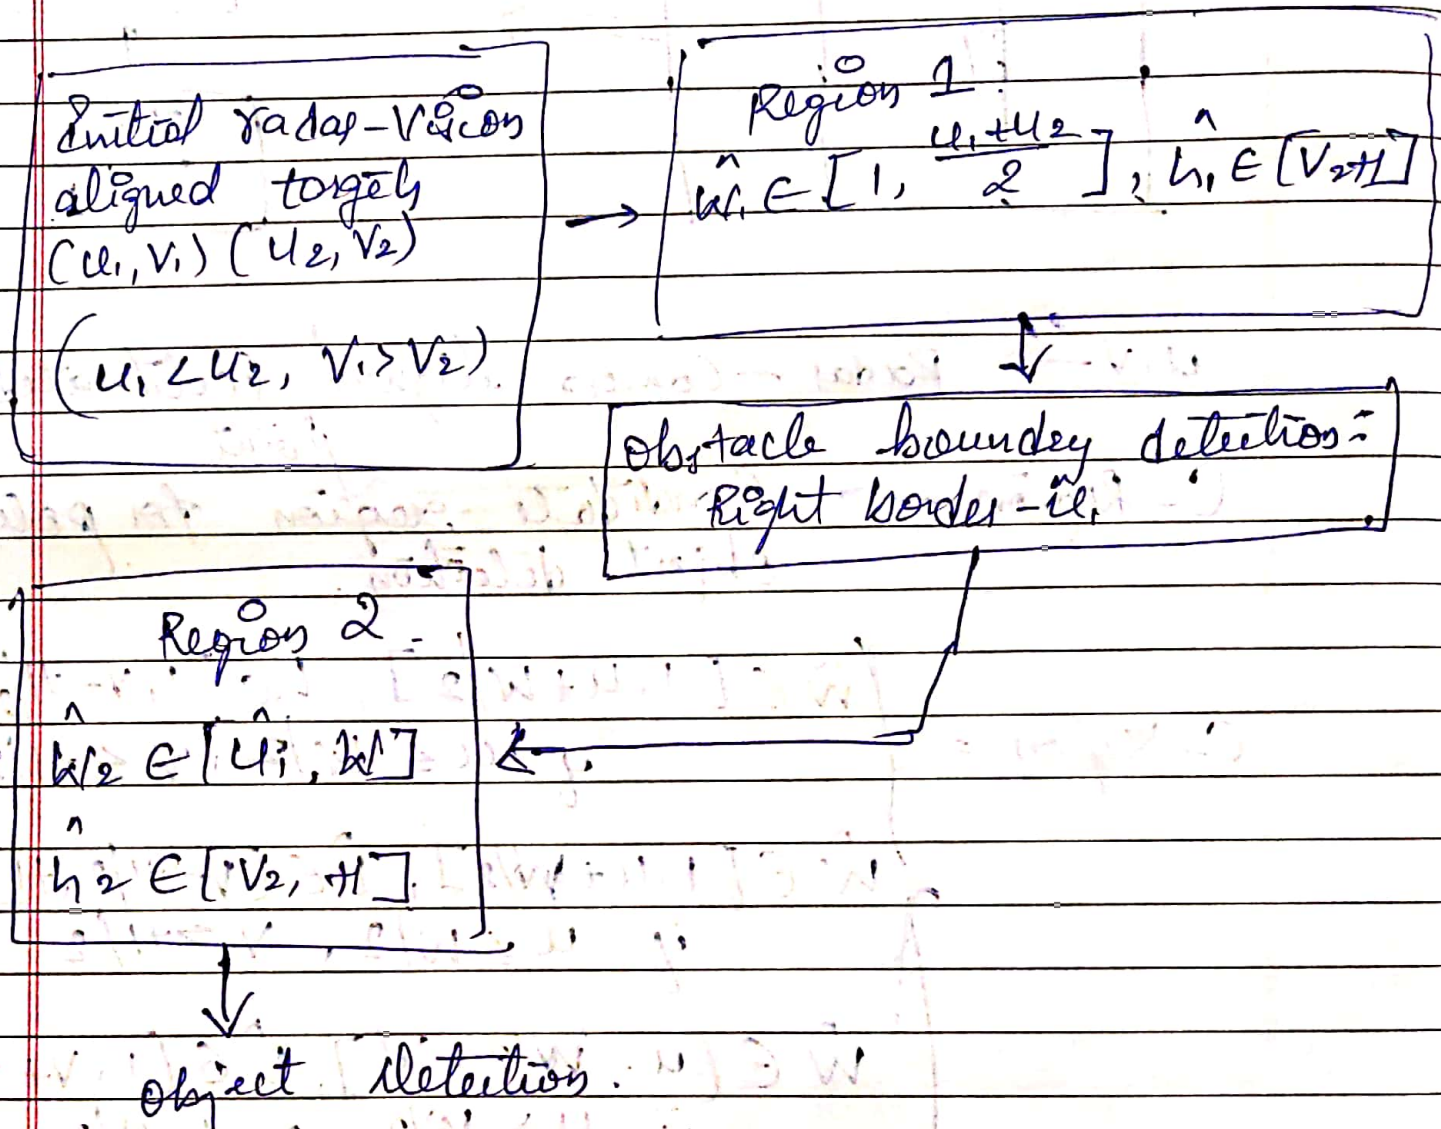 Initial radar-Vision
aligned targets
(u₁, v₁) (u₂, v₂)
(u₁ < u₂, v₁ > v₂)
Region 1 :
ŵ₁ ∈ [1, (u₁+u₂)/2], ĥ₁ ∈ [V₂ H]
Obstacle boundry detection:
Right border - û₁
Region 2 -
ŵ₂ ∈ [û₁, W]
ĥ₂ ∈ [V₂, H]
object detection.